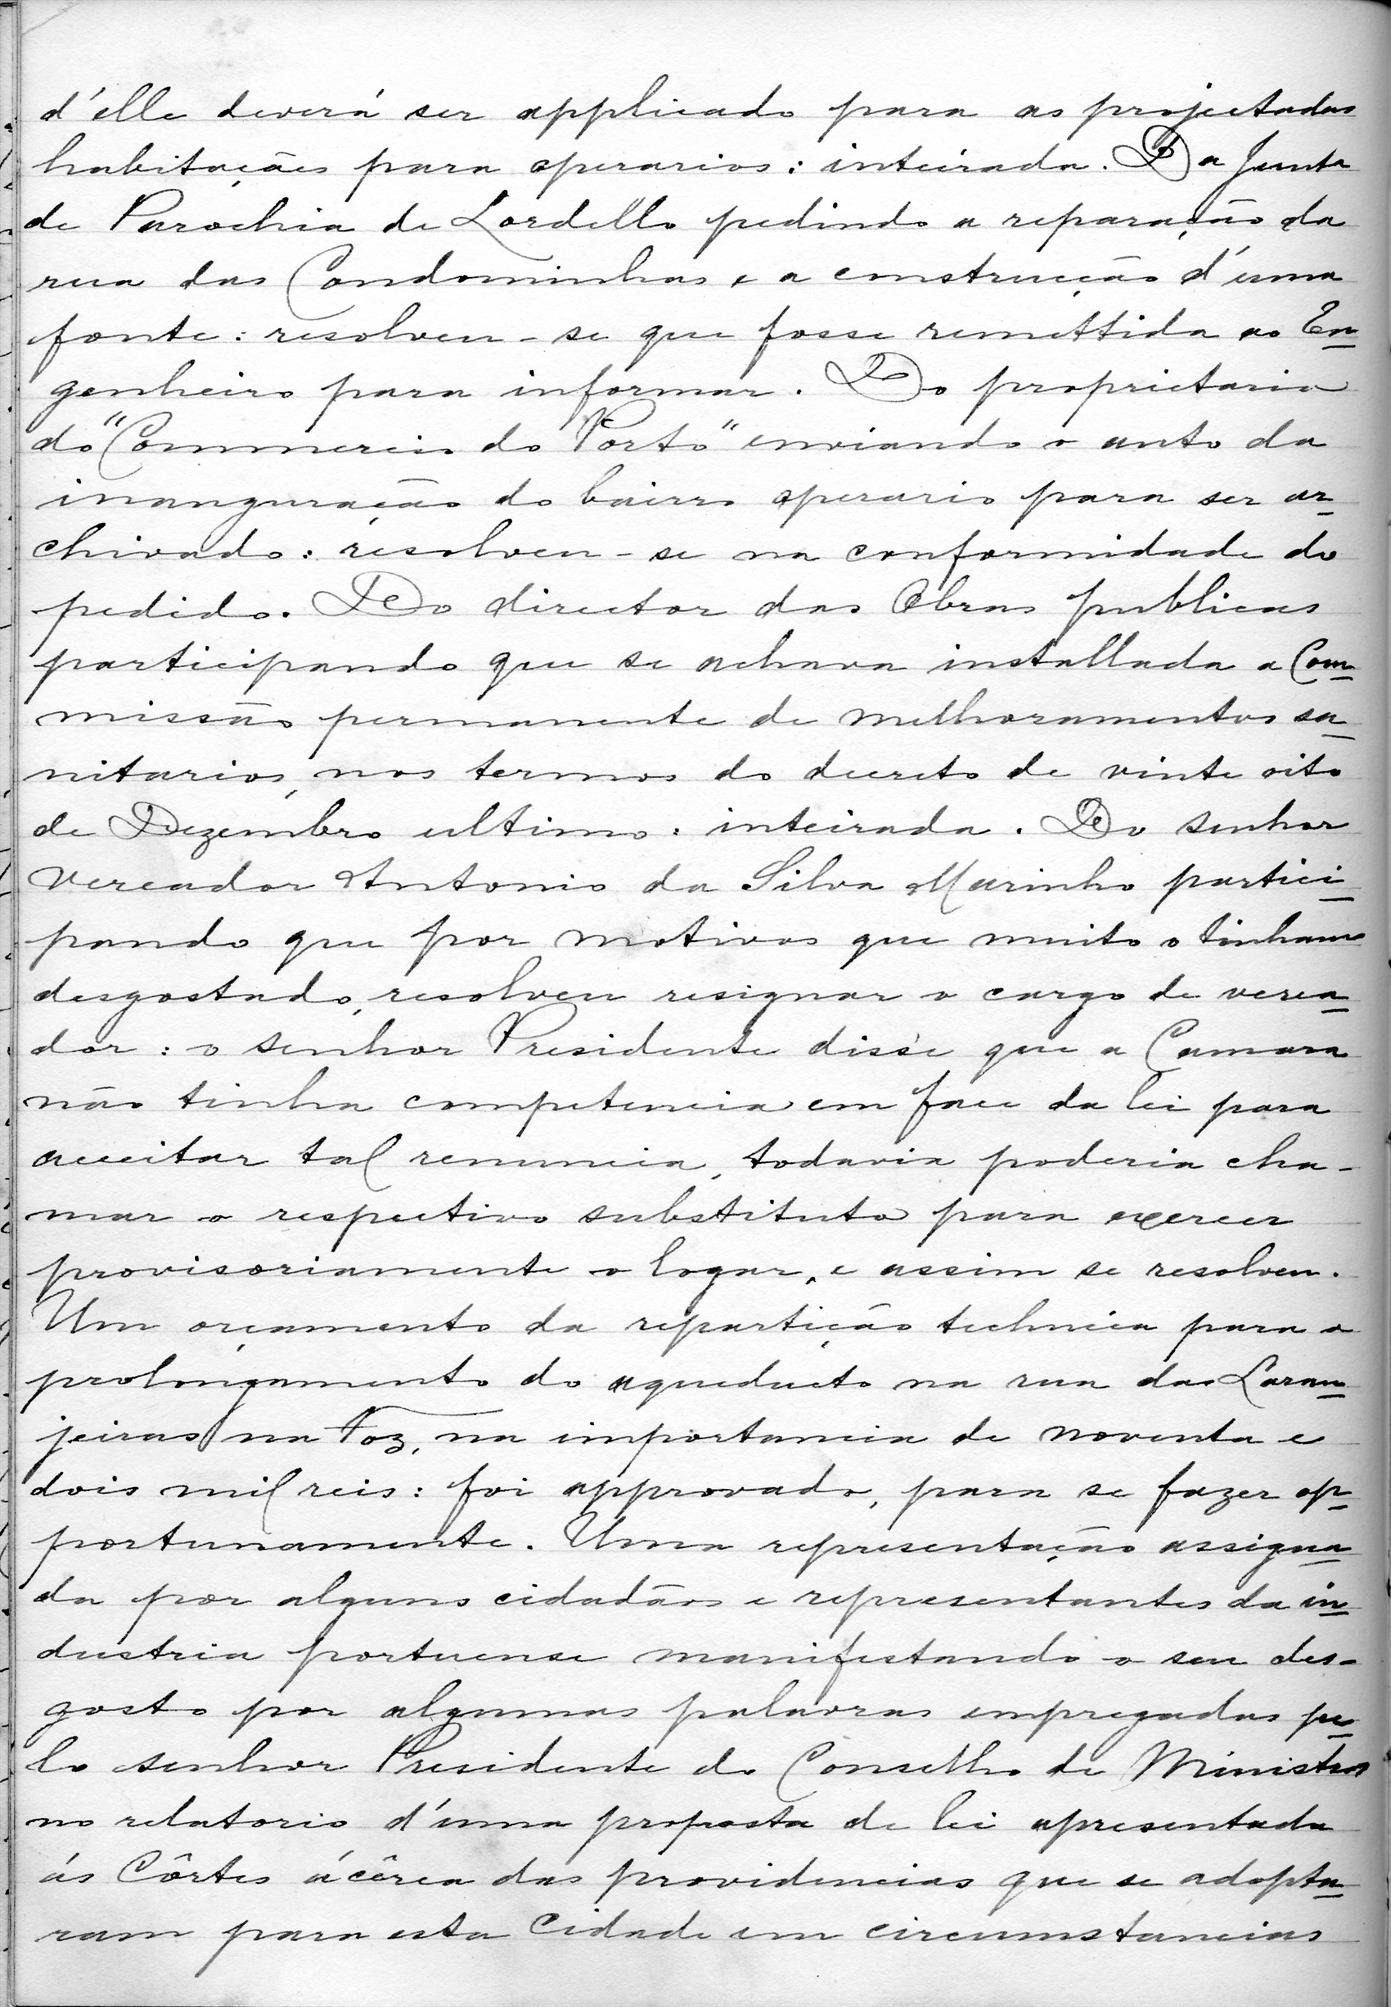 d'elle deverá ser applicado para as projectadas
habitações para operarios: inteirada. Da Junta
de Parochia de Lordello pedindo a reparação da
rua das Condominhas e a construcção d'uma
fonte: resolveu-se que fosse remettida ao En-
genheiro para informar. Do proprietario
do "Commercio do Porto" enviando o auto da
inauguração do bairro operario para ser ar-
chivado: resolveu-se na conformidade do
pedido. Do director das Obras publicas
participando que se achava installada a Com-
missão permanente de melhoramentos sa-
nitarios, nos termos do decreto de vinte oito
de Dezembro ultimo: inteirada. Do senhor
Vereador Antonio da Silva Marinho partici-
pando que por motivos que muito o tinham
desgostado, resolveu resignar o cargo de verea-
dor: o senhor Presidente disse que a Camara
não tinha competencia em face da lei para
acceitar tal renuncia, todavia poderia cha-
mar o respectivo substituto para exercer
provisoriamente o logar, e assim se resolveu.
Um orçamento da repartição technica para o
prolongamento do aqueducto na rua das Laran-
jeiras na Foz, na importancia de noventa e
dois mil reis: foi approvado, para se fazer op-
portunamente. Uma representação assigna-
da por alguns cidadãos e representantes da in-
dustria portuense manifestando o seu des-
gosto por algumas palavras empregadas pe-
lo senhor Presidente do Conselho de Ministros
no relatorio d'uma proposta de lei apresentada
ás Côrtes ácêrca das providencias que se adopta-
ram para esta Cidade em circumstancias